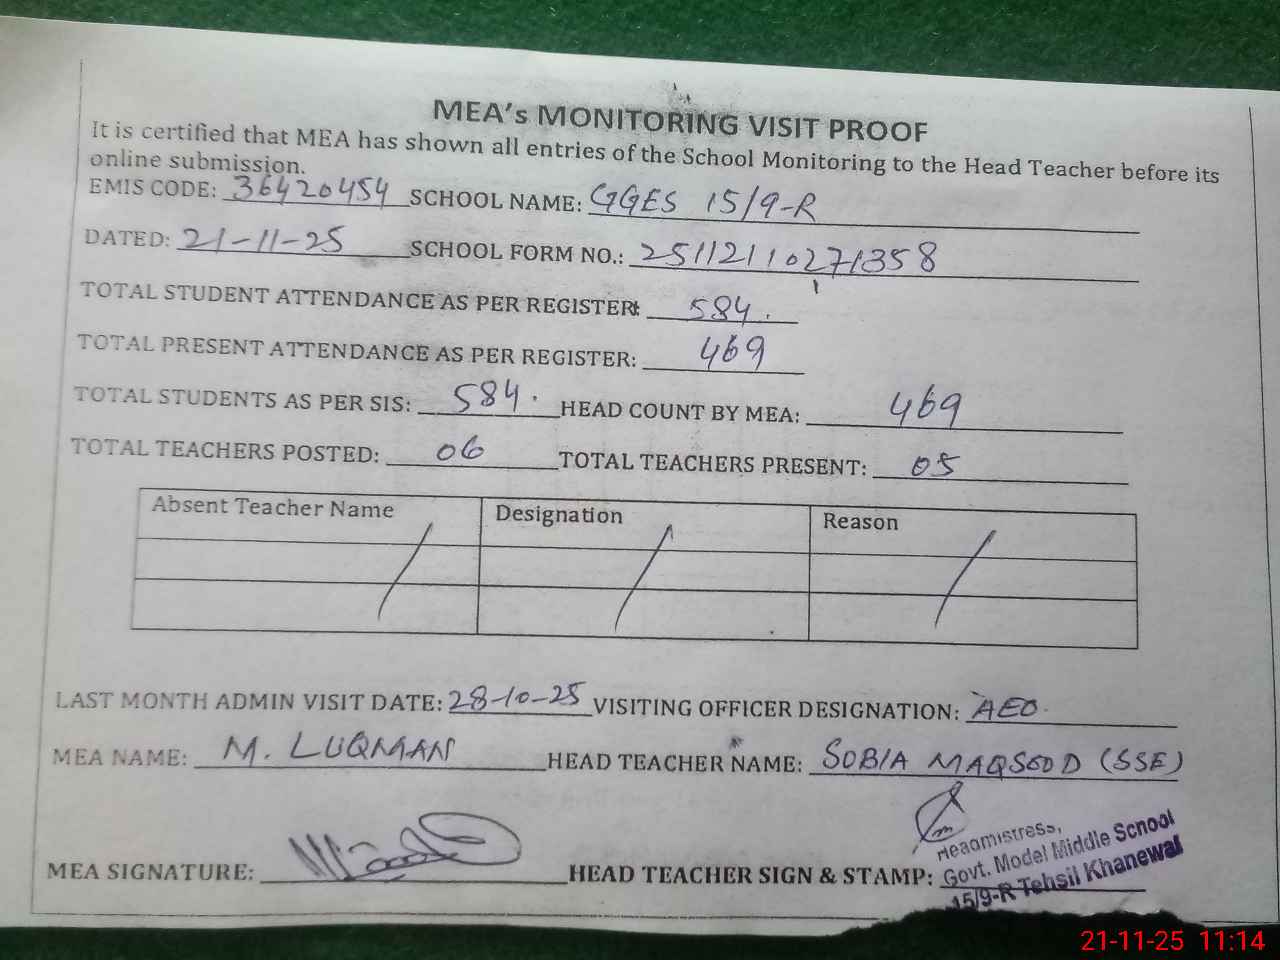 MEA's MONITORING VISIT PROOF
It is certified that MEA has shown all entries of the School Monitoring to the Head Teacher before its
online submission.
EMIS CODE: 36420454 SCHOOL NAME: GGES 15/9-R
DATED: 21-11-25 SCHOOL FORM NO.: 25112110271358
TOTAL STUDENT ATTENDANCE AS PER REGISTER: 584.
TOTAL PRESENT ATTENDANCE AS PER REGISTER: 469
TOTAL STUDENTS AS PER SIS: 584. HEAD COUNT BY MEA: 469
TOTAL TEACHERS POSTED: 06 TOTAL TEACHERS PRESENT: 05
Absent Teacher Name Designation Reason
LAST MONTH ADMIN VISIT DATE: 28-10-25 VISITING OFFICER DESIGNATION: AEO.
MEA NAME: M. LUQMAN HEAD TEACHER NAME: SOBIA MAQSOOD (SSE)
MEA SIGNATURE: HEAD TEACHER SIGN & STAMP:
Headmistress,
Govt. Model Middle School
15/9-R Tehsil Khanewal
21-11-25 11:14